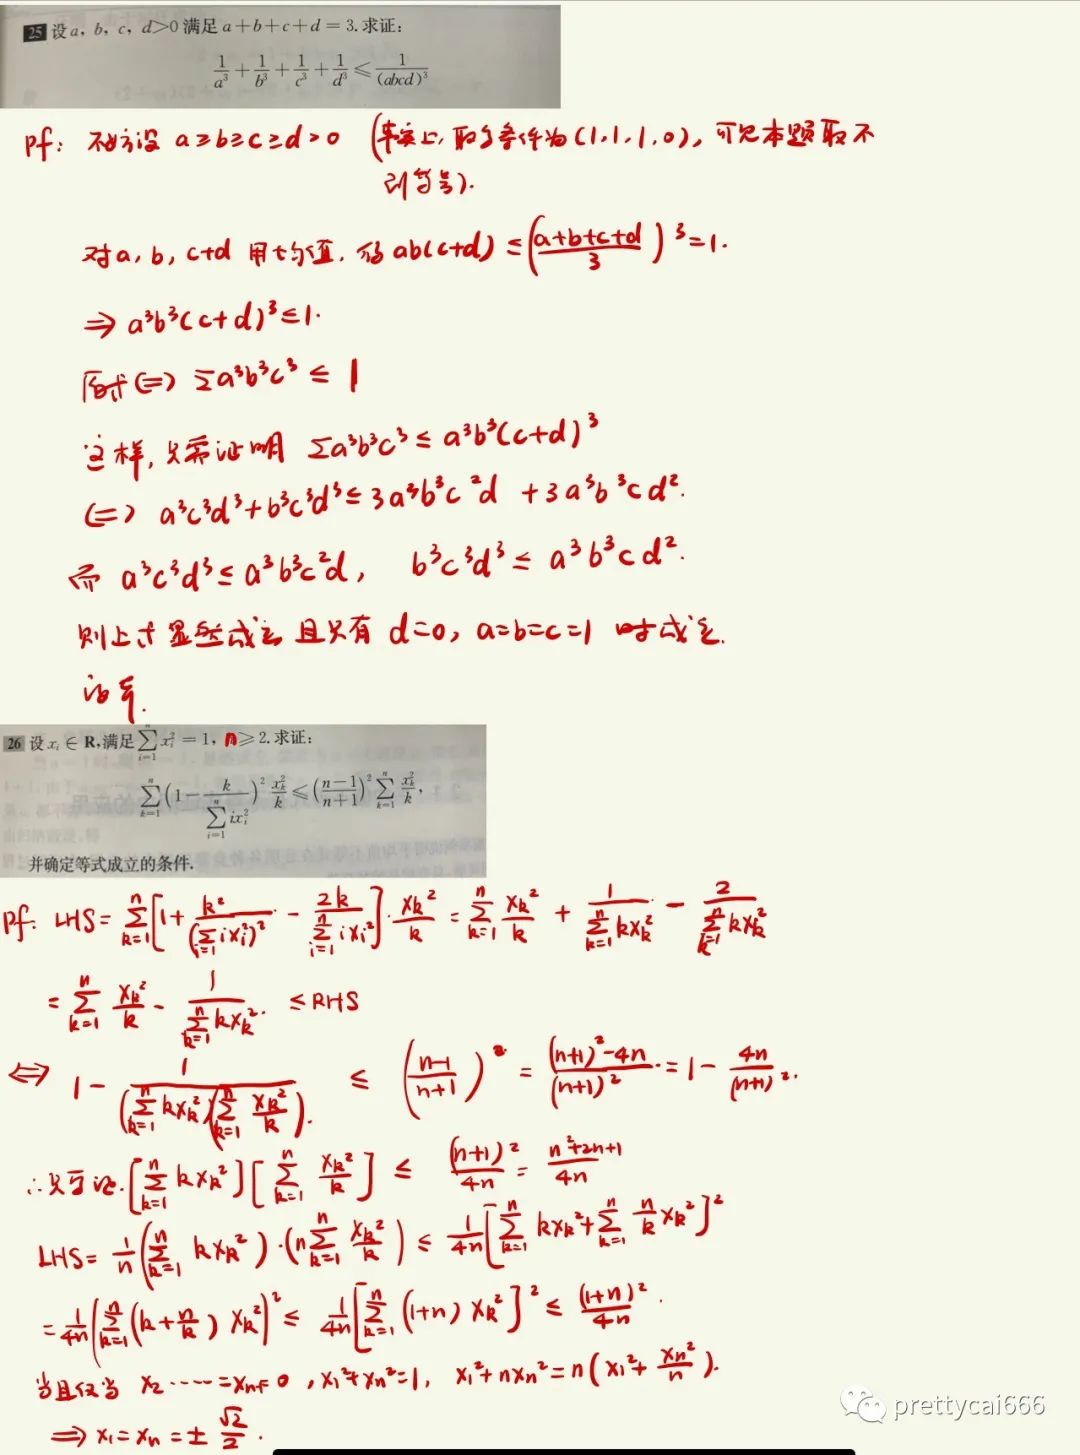 25 设a, b, c, d>0满足a+b+c+d=3.求证:
1/a³+1/b³+1/c³+1/d³≤1/(abcd)³
pf: 不妨设 a≥b≥c≥d>0 (事实上,取等条件为(1,1,1,0), 可见本题取不
到等号).
对a, b, c+d 用均值, 得 ab(c+d) ≤ ((a+b+c+d)/3)³=1.
⇒ a³b³(c+d)³≤1.
原式⇔ Σa³b³c³ ≤ 1
这样, 只需证明 Σa³b³c³ ≤ a³b³(c+d)³
⇔ a³c³d³+b³c³d³≤3a³b³c²d +3a³b³cd².
而 a³c³d³≤a³b³c²d, b³c³d³≤a³b³cd².
则上式显然成立 且只有 d=0, a=b=c=1 时成立.
证毕.
26 设xᵢ∈R,满足∑_{i=1}^{n} xᵢ²=1, n≥2.求证:
∑_{k=1}^{n} (1-k/(∑_{i=1}^{n} ixᵢ²))² xₖ²/k ≤ ((n-1)/(n+1))² ∑_{k=1}^{n} xₖ²/k,
并确定等式成立的条件.
pf: LHS=∑_{k=1}^{n} [1+k²/(∑_{i=1}^{n} ixᵢ²)² - 2k/(∑_{i=1}^{n} ixᵢ²)]·xₖ²/k = ∑_{k=1}^{n} xₖ²/k + 1/(∑_{k=1}^{n} kxₖ²) - 2/(∑_{k=1}^{n} kxₖ²)
=∑_{k=1}^{n} xₖ²/k - 1/(∑_{k=1}^{n} kxₖ²) ≤RHS
⇔ 1-1/((∑_{k=1}^{n} kxₖ²)(∑_{k=1}^{n} xₖ²/k)) ≤ ((n-1)/(n+1))² = ((n+1)²-4n)/(n+1)² = 1-4n/(n+1)².
∴只需证.[∑_{k=1}^{n} kxₖ²][∑_{k=1}^{n} xₖ²/k] ≤ (n+1)²/4n = (n²+2n+1)/4n
LHS= 1/n(∑_{k=1}^{n} kxₖ²)·(n∑_{k=1}^{n} xₖ²/k) ≤ 1/4n[∑_{k=1}^{n} kxₖ²+∑_{k=1}^{n} n/k xₖ²]²
=1/4n(∑_{k=1}^{n}(k+n/k)xₖ²)² ≤ 1/4n[∑_{k=1}^{n}(1+n)xₖ²]² ≤ (1+n)²/4n.
当且仅当 x₂……=xₙ₋₁=0, x₁²+xₙ²=1, x₁²+nxₙ²=n(x₁²+xₙ²/n).
⇒ x₁=xₙ=±√2/2.
prettycai666